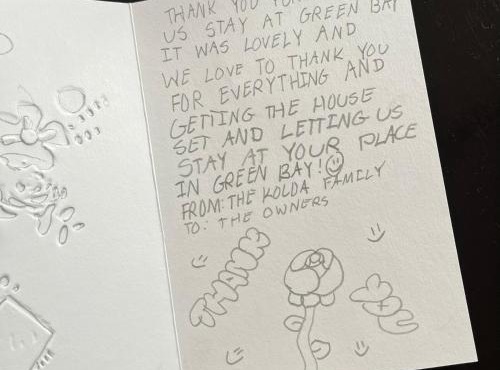 THANK YOU FOR
US STAY AT GREEN BAY
IT WAS LOVELY AND
WE LOVE TO THANK YOU
FOR EVERYTHING AND
GETTING THE HOUSE
SET AND LETTING US
STAY AT YOUR PLACE
IN GREEN BAY!
FROM: THE KOLDA FAMILY
TO: THE OWNERS
THANK
YOU